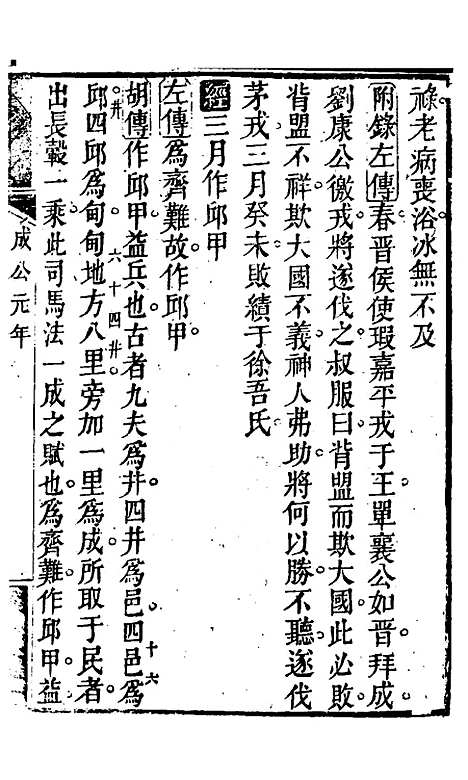 祿老病喪浴冰無不及
附錄左傳春晉侯使瑕嘉平戎于王單襄公如晉拜成
劉康公徼戎將遂伐之叔服曰背盟而欺大國此必敗
背盟不祥欺大國不義神人弗助將何以勝不聽遂伐
茅戎三月癸未敗績于徐吾氏
經三月作邱甲
左傳為齊難故作邱甲
胡傳作邱甲益兵也古者九夫為井四井為邑四邑為
十六
邱四邱為甸甸地方八里旁加一里為成所取于民者
井
六十四井
出長轂一乘此司馬法一成之賦也為齊難作邱甲益
成公元年